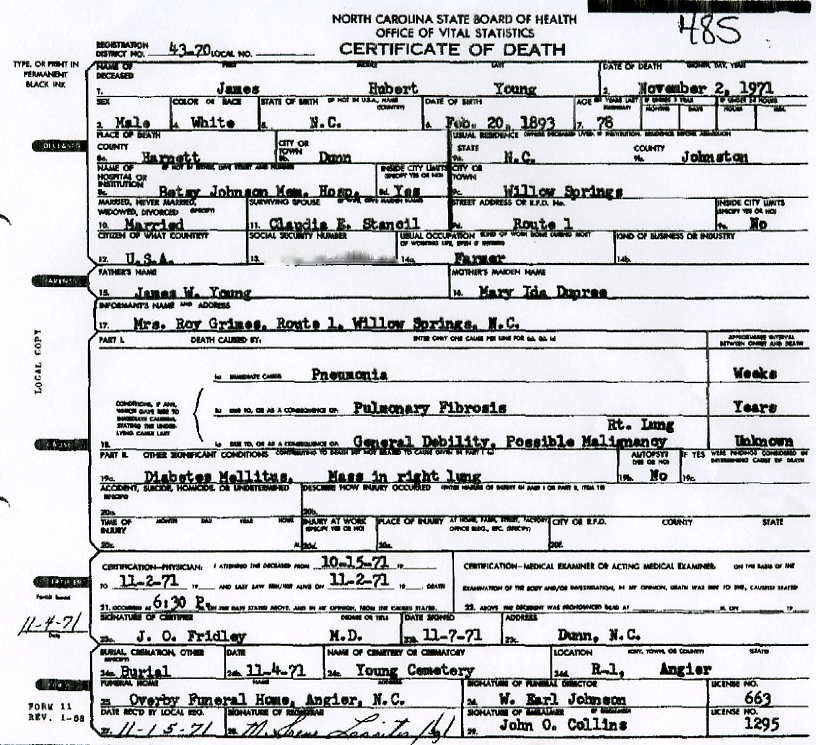 NORTH CAROLINA STATE BOARD OF HEALTH
OFFICE OF VITAL STATISTICS
CERTIFICATE OF DEATH
485
REGISTRATION DISTRICT NO. 43-70 LOCAL NO.
TYPE, OR PRINT IN PERMANENT BLACK INK
NAME OF DECEASED FIRST MIDDLE LAST DATE OF DEATH MONTH, DAY, YEAR
1. James Hubert Young 2. November 2, 1971
SEX COLOR OR RACE STATE OF BIRTH (IF NOT IN U.S.A., NAME COUNTRY) DATE OF BIRTH AGE
3. Male 4. White 5. N.C. 6. Feb. 20, 1893 7. 78
PLACE OF DEATH USUAL RESIDENCE
COUNTY CITY OR TOWN STATE COUNTY
8a. Harnett 8b. Dunn 9a. N.C. 9b. Johnston
NAME OF HOSPITAL OR INSTITUTION INSIDE CITY LIMITS CITY OR TOWN
8c. Betsy Johnson Mem. Hosp. 8d. Yes 9c. Willow Springs
MARRIED, NEVER MARRIED, WIDOWED, DIVORCED (SPECIFY) SURVIVING SPOUSE STREET ADDRESS OR R.F.D. No. INSIDE CITY LIMITS
10. Married 11. Claudia E. Stancil 9d. Route 1 9e. No
CITIZEN OF WHAT COUNTRY? SOCIAL SECURITY NUMBER USUAL OCCUPATION KIND OF BUSINESS OR INDUSTRY
12. U.S.A. 13. 14a. Farmer 14b.
FATHER'S NAME MOTHER'S MAIDEN NAME
15. James W. Young 16. Mary Ida Dupree
INFORMANT'S NAME AND ADDRESS
17. Mrs. Roy Grimes, Route 1, Willow Springs, N.C.
PART I. DEATH CAUSED BY: ENTER ONLY ONE CAUSE PER LINE APPROXIMATE INTERVAL BETWEEN ONSET AND DEATH
(a) IMMEDIATE CAUSE Pneumonia Weeks
CONDITIONS, IF ANY, WHICH GAVE RISE TO IMMEDIATE CAUSE, STATING THE UNDERLYING CAUSE LAST
DUE TO, OR AS A CONSEQUENCE OF: Pulmonary Fibrosis Years
Rt. Lung
18. DUE TO, OR AS A CONSEQUENCE OF: General Debility, Possible Malignancy Unknown
PART II. OTHER SIGNIFICANT CONDITIONS AUTOPSY? (YES OR NO) IF YES WERE FINDINGS CONSIDERED IN DETERMINING CAUSE OF DEATH
19a. Diabetes Mellitus, Mass in right lung 19b. No 19c.
ACCIDENT, SUICIDE, HOMICIDE, OR UNDETERMINED DESCRIBE HOW INJURY OCCURRED
20a. 20b.
TIME OF INJURY MONTH DAY YEAR HOUR INJURY AT WORK PLACE OF INJURY CITY OR R.F.D. COUNTY STATE
20c. 20d. 20e. 20f.
CERTIFICATION—PHYSICIAN: I ATTENDED THE DECEASED FROM 10-15-71 CERTIFICATION—MEDICAL EXAMINER OR ACTING MEDICAL EXAMINER
TO 11-2-71 AND LAST SAW HIM/HER ALIVE ON 11-2-71 DEATH
21. OCCURRED AT 6:30 P. 22.
SIGNATURE OF CERTIFIER DEGREE OR TITLE DATE SIGNED ADDRESS
23a. J. O. Fridley M.D. 23b. 11-7-71 23c. Dunn, N.C.
11-4-71
Date
BURIAL, CREMATION, OTHER DATE NAME OF CEMETERY OR CREMATORY LOCATION
24a. Burial 24b. 11-4-71 24c. Young Cemetery 24d. R-1, Angier
FUNERAL HOME NAME ADDRESS SIGNATURE OF FUNERAL DIRECTOR LICENSE NO.
25. Overby Funeral Home, Angier, N.C. 26. W. Earl Johnson 663
DATE REC'D BY LOCAL REG. SIGNATURE OF REGISTRAR SIGNATURE OF EMBALMER LICENSE NO.
27. 11-15-71 28. 29. John O. Collins 1295
LOCAL COPY
FORM 11
REV. 1-68